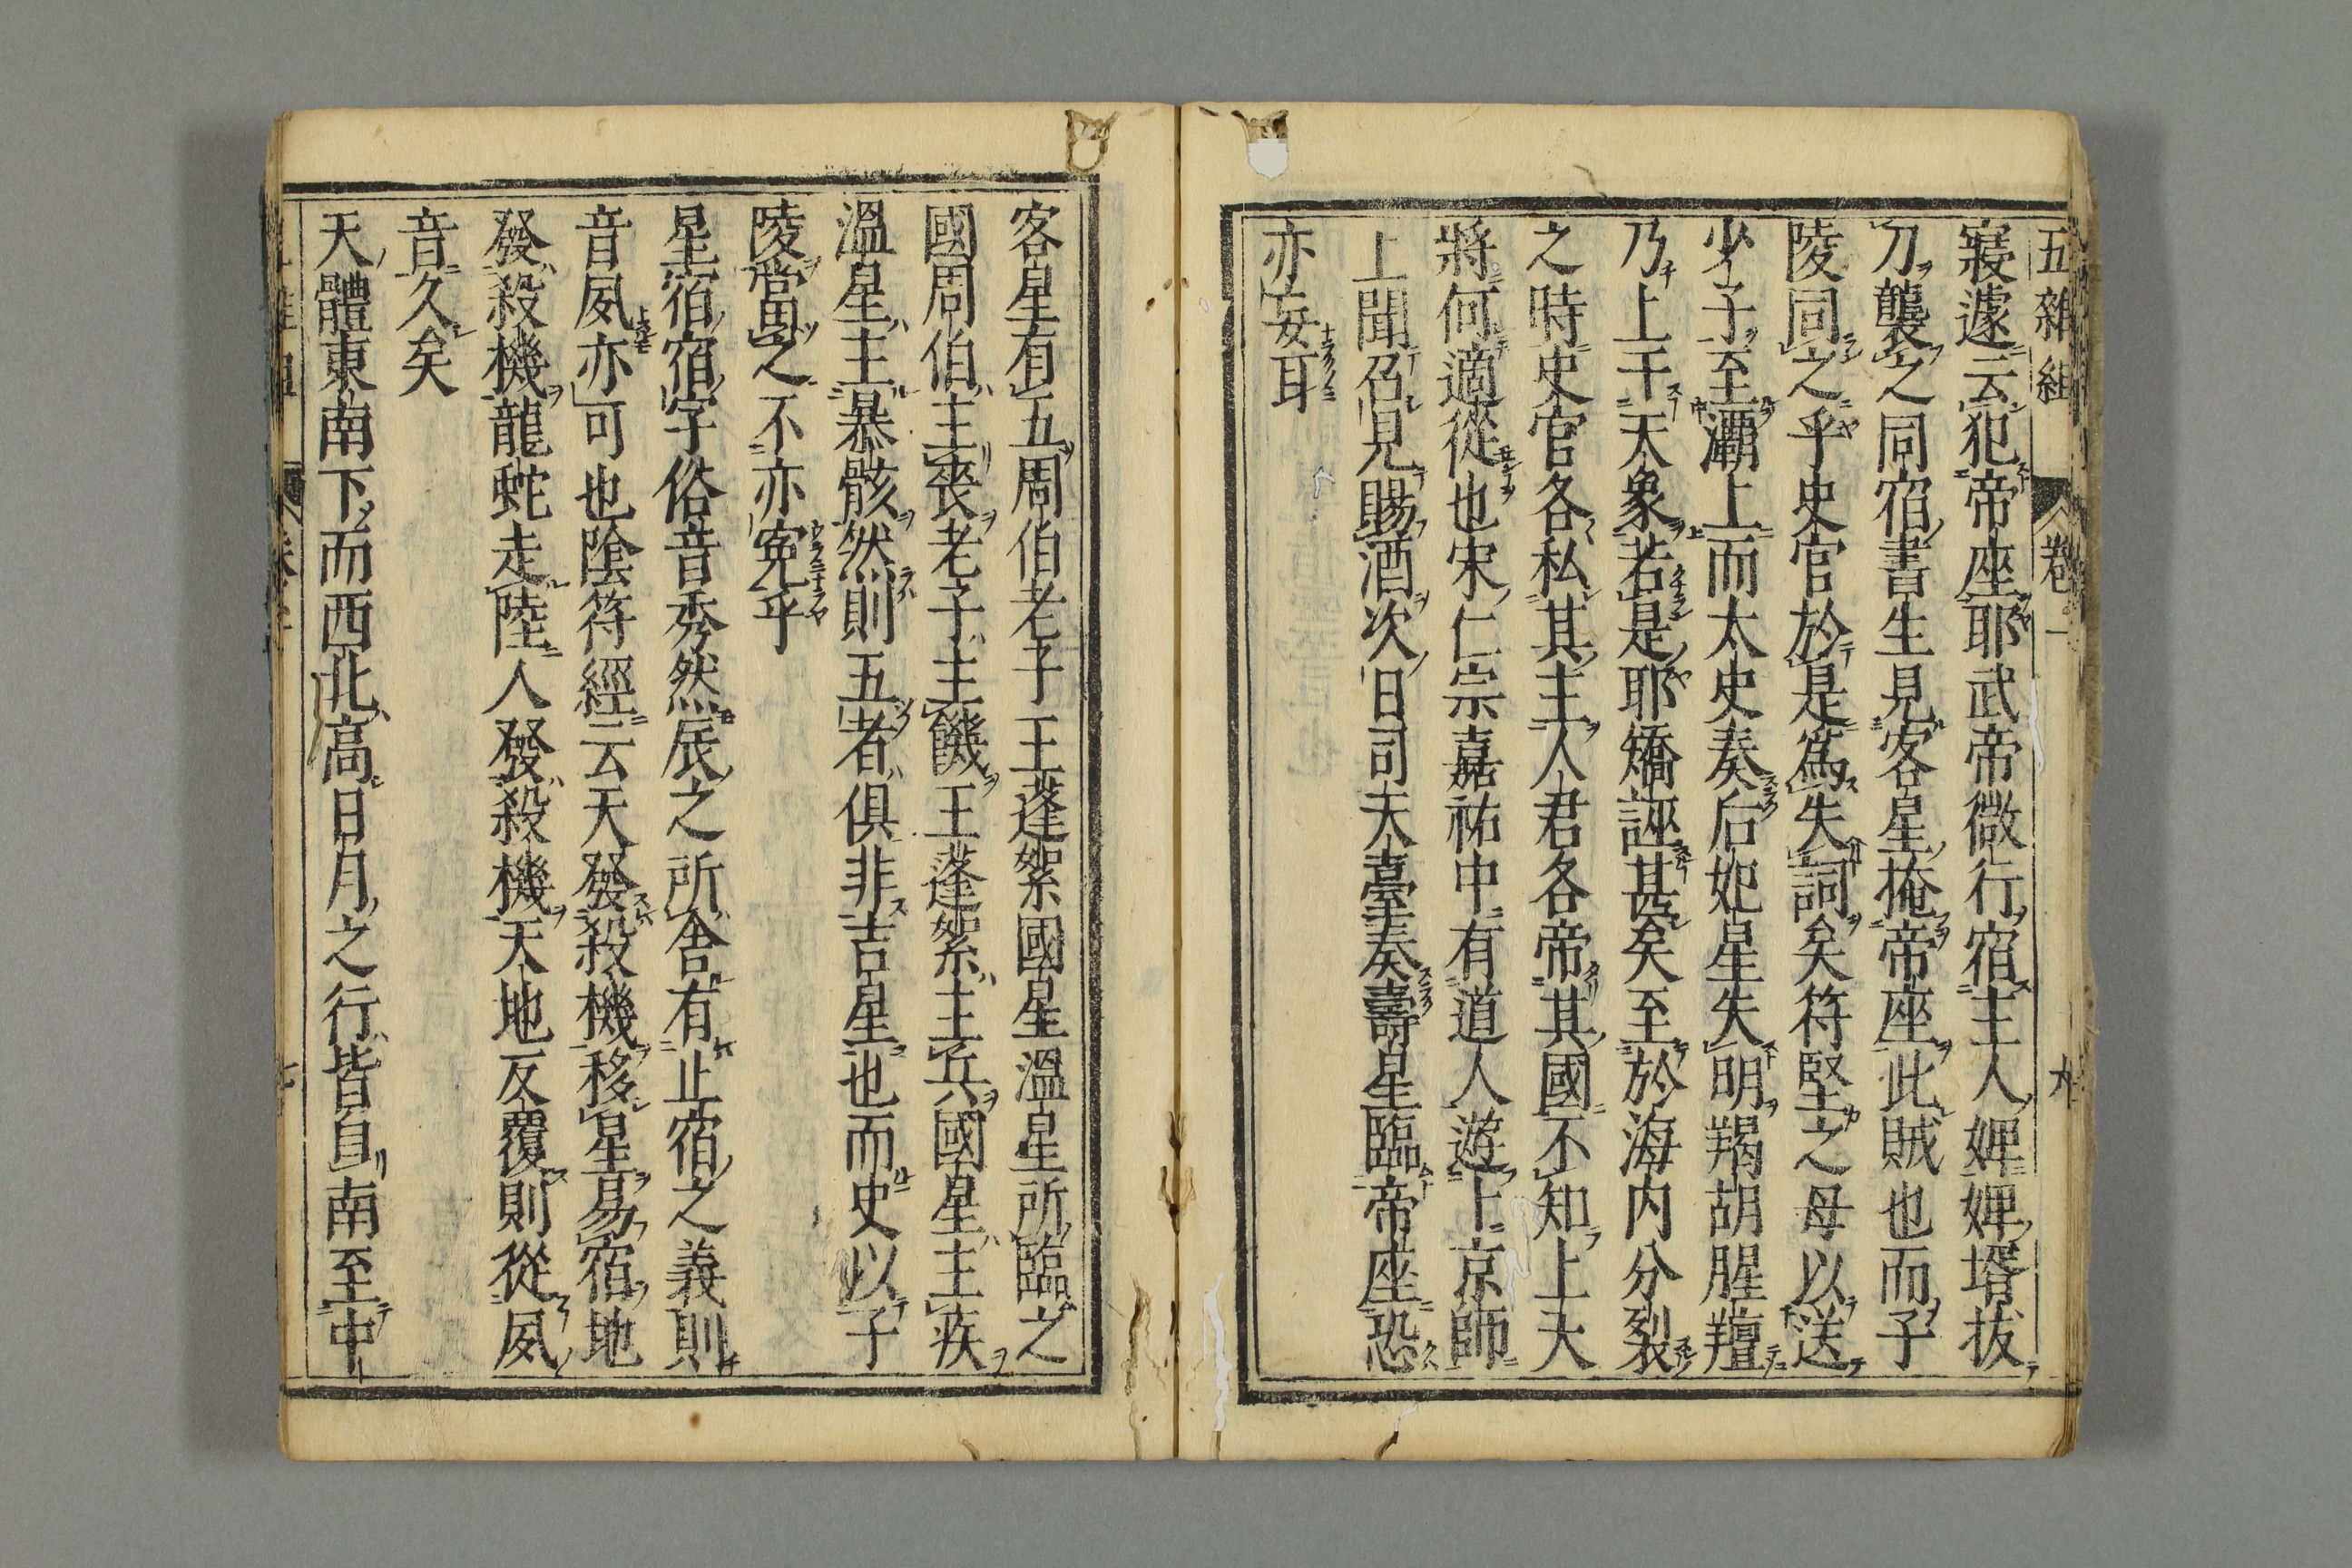 五雜組 卷一
寢遽云犯帝座耶武帝微行宿主人婢婢壻拔
刀襲之同宿書生見客星掩帝座此賊也而子
陵同之乎史官於是爲失詞矣符堅之母以送
少子至灞上而太史奏后妃星失明羯胡腥羶
乃上干天象若是耶矯誣甚矣至於海内分裂
之時史官各私其主人君各帝其國不知上天
將何適從也宋仁宗嘉祐中有道人遊上京師
上聞召見賜酒次日司天臺奏壽星臨帝座恐
亦妄耳
客星有五周伯老子王蓬絮國星溫星所臨之
國周伯主喪老子主饑王蓬絮主兵國星主疾
溫星主暴骸然則五者俱非吉星也而史以子
陵當之不亦寃乎
星宿宿字俗音秀然辰之所舍有止宿之義則
音夙亦可也陰符經云天發殺機移星易宿地
發殺機龍蛇走陸人發殺機天地反覆則從夙
音久矣
天體東南下而西北高日月之行皆自南至中